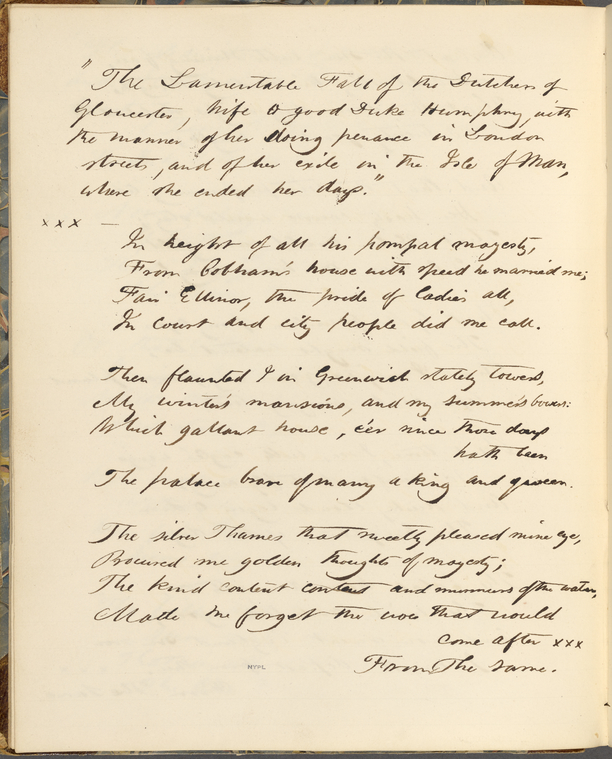 "The Lamentable Fall of the Dutchess of
Gloucester, wife to good Duke Humphry, with
the manner of her doing penance in London
streets, and of her exile in the Isle of Man,
where she ended her days."
x x x —
In height of all his pompal majesty,
From Cobham's house with speed he married me;
Fair Ellinor, the pride of ladies all,
In court and city people did me call.
Then flaunted I in Greenwich stately towers,
My winter's mansions, and my summer's bowers:
Which gallant house, e'er since those days
hath been
The palace brave of many a king and queen.
The silver Thames that sweetly pleased mine eye,
Procured me golden thoughts of majesty;
The kind content and murmurs of the water,
Made me forget the woe that would
come after xxx
From The same.
NYPL